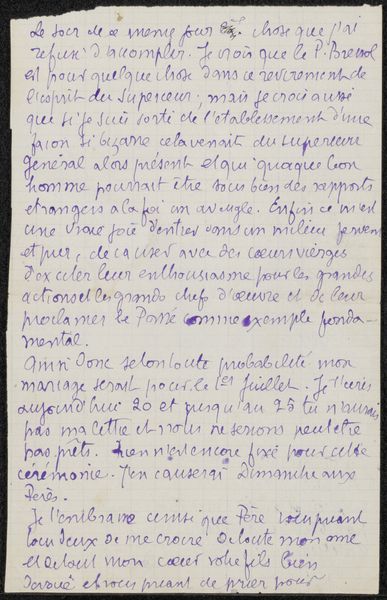 Le soir de ce meme jour chose que j'ai
refusé d'accomplir. Je crois que le P.
est pour quelque chose dans ce revirement de
l'esprit du Superieur; mais je crois aussi
que si je suis sorti de l'etablissement d'une
façon si bizarre cela venait du superieur
général alors présent et qui quoique bon
homme pourrait être sous bien des rapports
etrangers a la foi un aveugle. Enfin ce m'est
une vraie joie d'entrer dans un milieu fervent
et pur, de causer avec des coeurs vierges
d'exciter leur enthousiasme pour les grandes
actions et les grands chefs d'oeuvre et de leur
proclamer le Passé comme exemple fonda-
mental.
Ainsi donc selon toute probabilité mon
mariage serait pour le 1er Juillet. Je t'ecris
aujourd'hui 20 et jusqu'au 25 tu n'aurais
pas ma lettre et nous ne serions peut etre
pas prêts. Rien n'est encore fixé pour cette
cérémonie. J'en causerai Dimanche aux
Pères.
Je t'embrasse ainsi que Père vous priant
tous deux de me croire de toute mon ame
et de tout mon coeur votre fils bien
dévoué et vous priant de prier pour